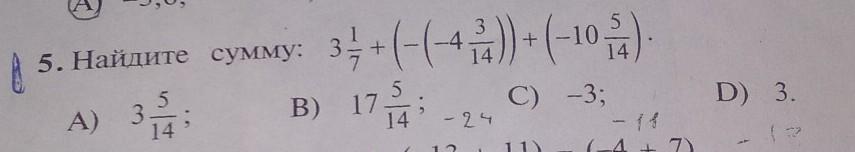 A)
5. Найдите сумму: 3 1/7 + (-(-4 3/14)) + (-10 5/14).
A) 3 5/14; B) 17 5/14; C) -3; D) 3.
-24 -11
11) (-4 + 7)